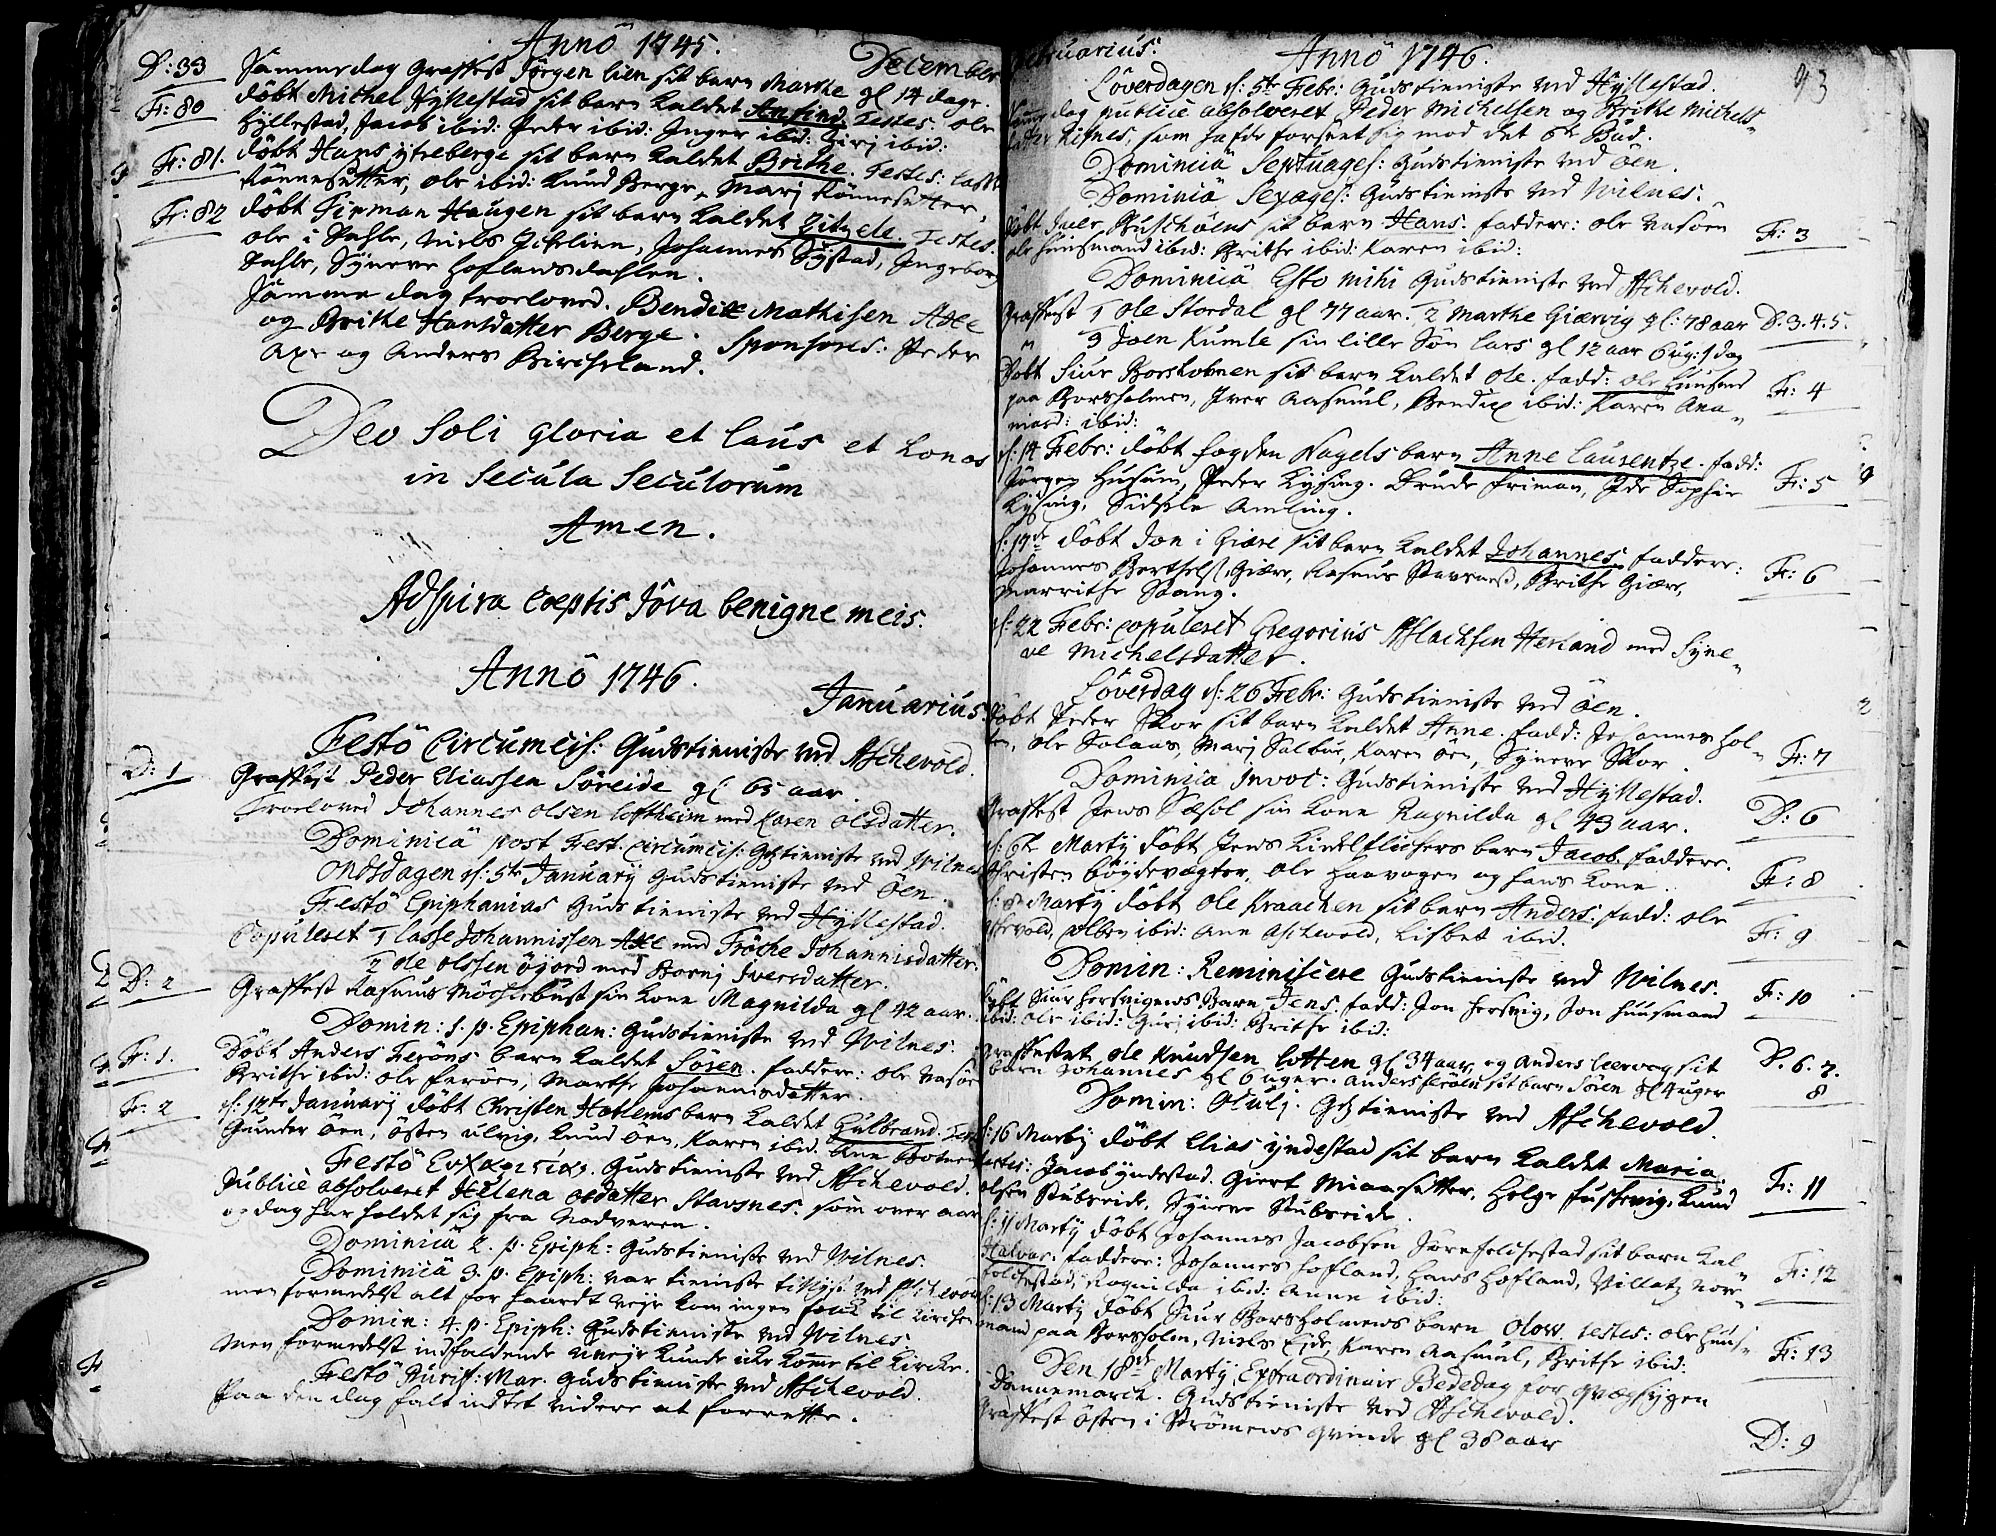 Annô 1745.
December
D: 33 Samme dag Graffest Jörgen Lien sit barn Marthe gl 14 dage.
F: 80 döbt Michel Hyllestad sit barn kaldet Anfind. Testes: ole
Hyllestad, Jacob ibid: Peder ibid: Inger ibid: Siri ibid:
F: 81. döbt Hans ytreberge sit barn kaldet Brithe. Testes: Lasse
Rönnesetter, ole ibid: Knud Berge, Marj Rönnesetter,
F: 82 döbt Firman Haugen sit barn kaldet Zitzele. Testes.
ole i Dahle, Niels Johannes Systad, Ingeborg
Dahle, Syneve Hoflandsdahlen.
Samme dag troeloved. Bendix Mathisen Axe
og Brithe Hansdatter Berge. Sponsores: Peder
Axe og Anders Bircheland.
Deo Soli gloria et laus et honos
in Secula Seculorum
Amen.
Adspira Coeptis Jôva benigne meis.
Annô 1746.
Januarius.
Festô Circumcis: Gudstieniste ved Aschevold.
D: 1 Graffest Peder Eliassen Söreide gl: 65 aar.
Troeloved Johannes olsen loftheim med Karen olsdatter.
Dominicâ post Fest. circumcis: Gtztieniste ved Wilnes
Ondsdagen d: 5te Januarij Gudstieniste ved öen.
Festô Epiphanias Gudstieniste ved Hyllestad.
Copuleret 1 Lasse Johannissen Axe med Fröche Johannisdatter.
2 ole olssen öjord med Bornj Iversdatter.
D: 2 Graffest Rasmus Möchlebust sin kone Magnilda gl 42 aar.
Domin: 1. p. Epiphan: Gudstieniste ved Wilnes.
F: 1. Döbt Anders Feröns barn kaldet Sören. faddere: ole Nasöen
Brithe ibid: ole feröen, Marthe Johannisdatter.
F: 2 d: 12te Januarij döbt Christen Hatlems barn kaldet Gulbrand. Test:
Gunder öen, östen ulvig, Knud öen, Karen ibid. Ane
Festô Gudstieniste ved Aschevold.
Publicè absolveret Helena olsdatter Stavsnes. som over aar
og dag har holdet sig fra Nadveren.
Dominicâ 2. p. Epiph: Gudstieniste ved Wilnes.
Dominicâ 3. p. Epiph: var tieniste tillyst ved Aschevold
men formedelst alt for haardt veyr kom ingen folck til Kirchen
Domin: 4. p. Epiph: Gudstieniste ved Wilnes
Men formedelst indfaldende uveyr kunde icke komme til Kircke.
Festô Purif: Mar. Gudstieniste ved Aschevold.
Paa den dag falt indtet videre at forrette.
Februarius.
Annô 1746.
93
Löverdagen d: 5te Febr: Gudstieniste ved Hyllestad.
Samme dag publicè absolveret Peder Michelsen og Brithe Michels-
datter Risnes, som hafde forseet sig mod det 6te Bud.
Dominicâ Septuages: Gudstieniste ved öen.
Dominicâ Sexages: Gudstieniste ved Wilnes.
döbt Iver Buschöens sit barn Hans. faddere: ole Nasöen F: 3
ole Huusmand ibid: Brithe ibid: Karen ibid:
Dominicâ Esto mihi Gudstieniste ved Aschevold.
Graffest 1 ole Stordal gl 77 aar. 2 Marthe Giervig gl: 78 aar D: 3. 4. 5.
3 Joen Kumle sin lille Sön Lars gl 12 aar 6 ug: 1 dag
Döbt Siur Borsholmen sit barn kaldet ole. fadd: ole Huusmd F: 4
paa Borsholmen, Iver Aasmul, Bendix ibid: Karen Ana-
niasd: ibid:
d: 14 Febr: döbt fogden Nagels barn Anne Laurentze. fadd:
Jörgen Husum, Peder Kysing. Drude friman, Ide Sophie F: 5
Kysing, Sidsele Amling.
d: 17de döbt Jon i Giære sit barn kaldet Johannes faddere:
Johannes Berthels: Giære, Rasmus Stavenes, Brithe Giære, F: 6
Marrithe Stang.
d: 22 Febr: copuleret Gregorius Aslachsen Herland med Syne-
ve Michelsdatter.
Löverdag d: 26 Febr: Gudstieniste ved öen.
Döbt Peder Skor sit barn kaldet Anne. fadd: Johannes Hol-
ole Solaas, Marj Salbue, Karen öen, Syneve Skor. F: 7
Dominica Invoc: Gudstieniste ved Hyllestad.
Graffest Jens Sæsol sin kone Ragnilda gl 43 aar. D: 6
d: 6te Martij döbt Jens Kindelflichers barn Jacob. faddere.
Christen böydevægter, ole Haavogen og hans kone. F: 8
d: 8de Martij döbt ole Kraachen sit barn Anders: fadd: ole
Aschevold, ibid: Ane Aschevold, Lisbet ibid. F: 9
Domin: Reminiscere Gudstieniste ved Wilnes.
Döbt Siur Hersvigens barn Jens. fadd: Jon Hersvig, Jon Huusmand F: 10
ibid: ole ibid: Gurj ibid: Brithe ibid:
Graffestet ole Knudsen lotten gl 34 aar, og Anders leervog sit D. 6. 7.
barn Johannes gl 6 uger. Anders feröen sit barn Sören gl 4 uger 8
Domin: Oculj. Gtztieniste ved Aschevold.
d: 16 Martij döbt Elias yndestad sit barn kaldet Maria.
testes: Jacob yndestad. Giert Mionesetter, Helge fustevig, Knud F: 11
olsen Stubseide, Syneve Stubseide.
d: 11 Martij döbt Johannes Jacobsen Sörefolchestad sit barn kal-
Halvor. faddere: Johannes Hofland, Hans Hofland, Villatz Nore- F: 12
folchestad, Ragnilda ibid: Anne ibid:
d: 13 Martij döbt Siur Borsholmens barn Olow. testes: ole Huus-
mand paa Borsholm, Niels Eide, Karen Aasmul, Brithe ibid: F: 13
Den 18de Martij Extraordinair Bededag for qvægsygen
Dannemarck. Gudstieniste ved Aschevold.
Graffest östen i Strömens qvinde gl 38 aar D: 9